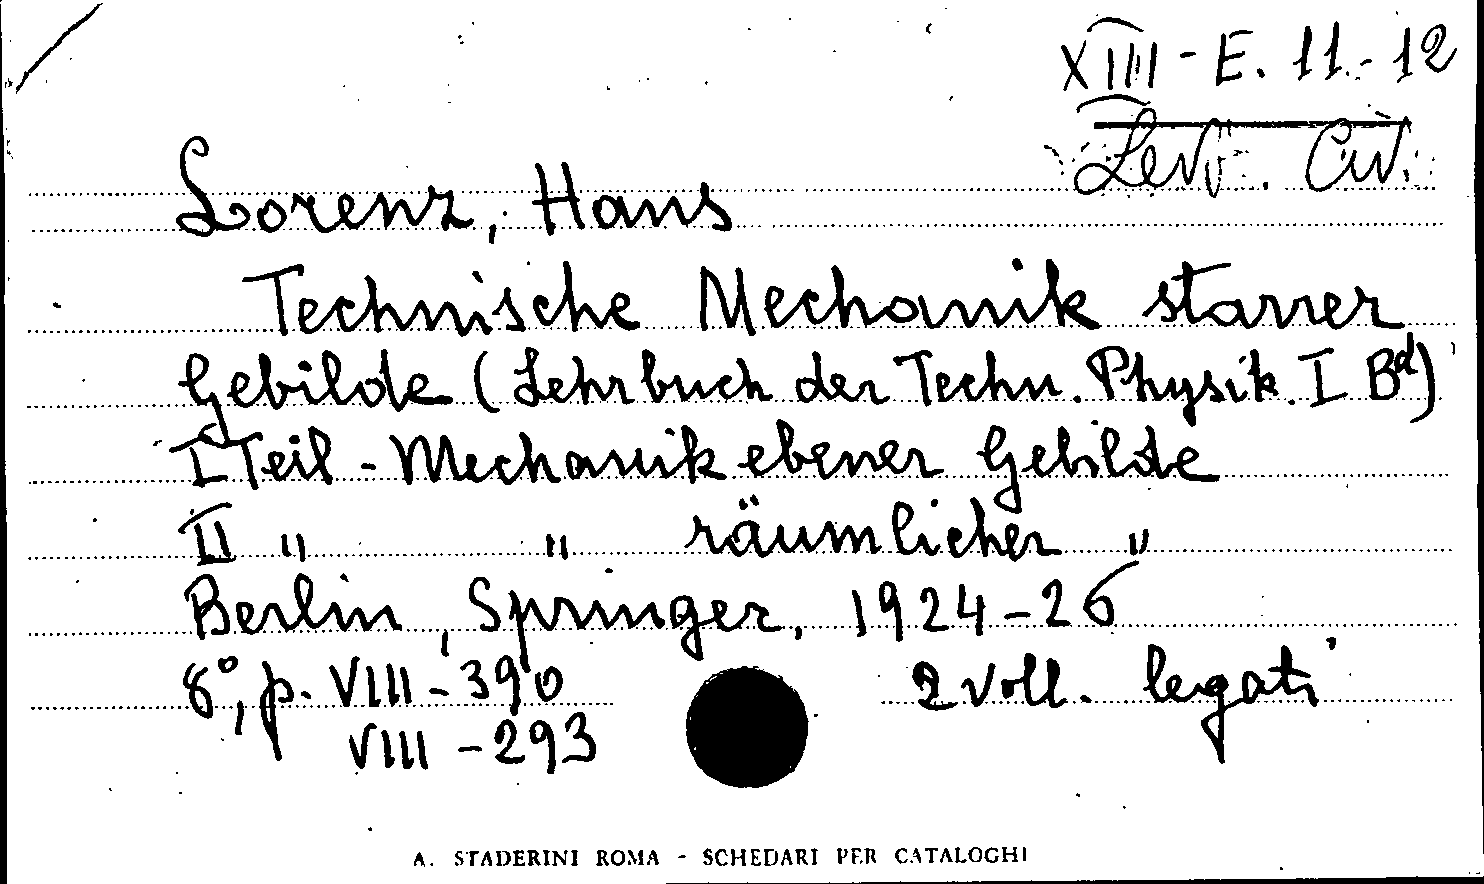 XIII - E. 11.-12
Lev. Civ.
Lorenz, Hans
Technische Mechanik starrer
Gebilde (Lehrbuch der Techn. Physik. I Bd)
I Teil - Mechanik ebener Gebilde
II " " räumlicher "
Berlin, Springer, 1924-26
8°, p. VIII-390 2 voll. legati
VIII-293
A. STADERINI ROMA - SCHEDARI PER CATALOGHI